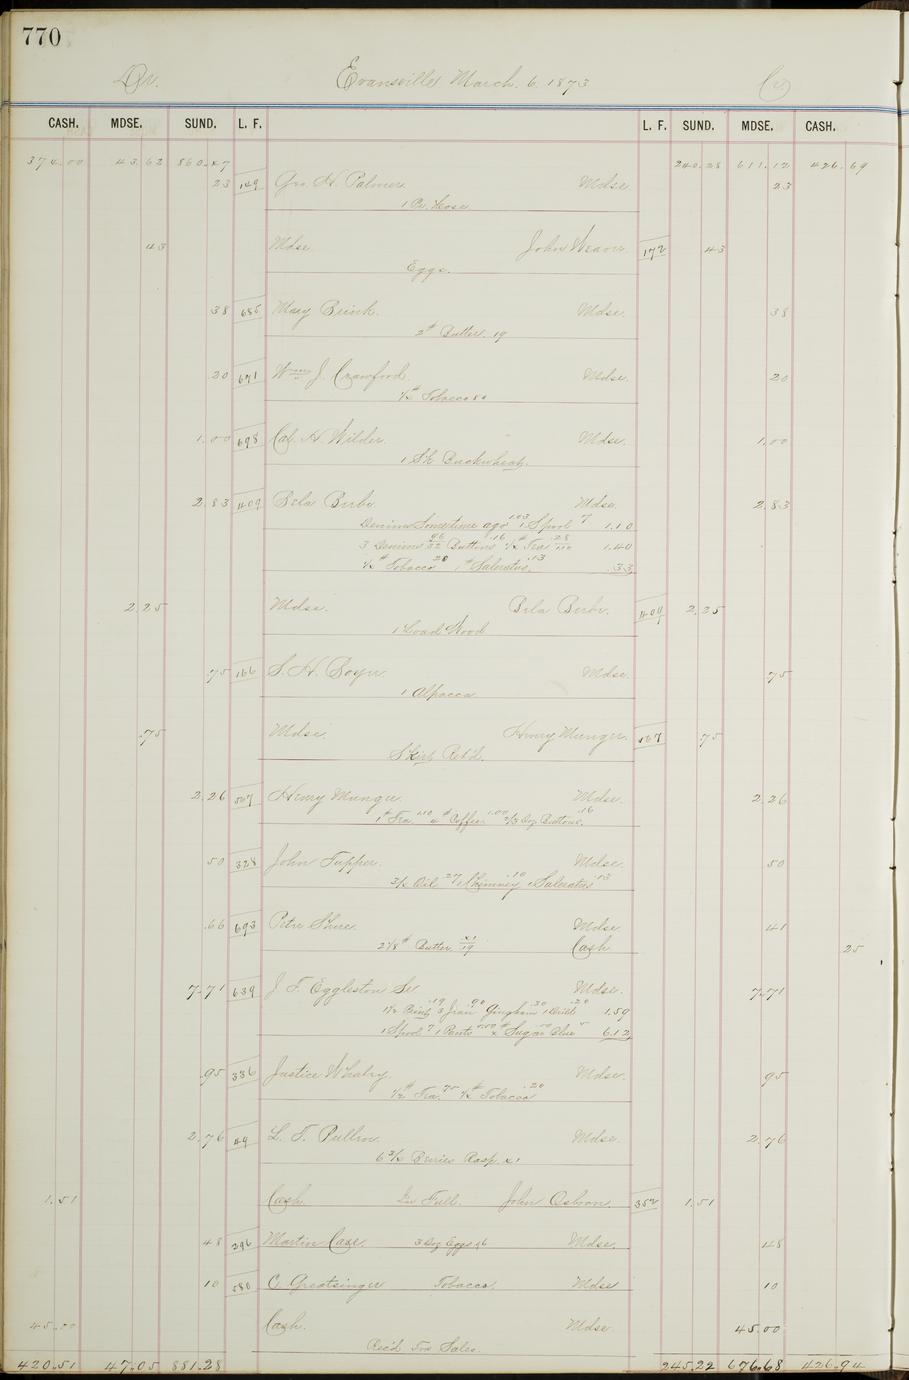 770
Dr. Evansville March. 6. 1873 Cr
CASH. MDSE. SUND. L. F. L. F. SUND. MDSE. CASH.
374.00 43.62 860.47 240.28 611.12 426.69
23 149 Geo. H. Palmer. Mdse. 23
1 Pr. Hose
43 Mdse. John Weaver. 172 43
Eggs.
38 685 Mary Brink. Mdse. 38
2# Butter. 19
20 671 Wm J. Crawford. Mdse. 20
1/4# Tobacco 80
1.00 698 Cal. H. Wilder. Mdse. 1.00
1 Sk Buckwheat.
2.83 409 Bela Beebe. Mdse. 2.83
Denims Sometime ago 1.03 1 Spool 7 1.10
3 Denims Buttons .16 Tea .28 1.40
Tobacco 20 1# Saleratus. .13 .33
2.25 Mdse. Bela Beebe. 409 2.25
1 Load Wood
.75 166 S. H. Mdse. 75
1 Alpacca
.75 Mdse. Henry Munger. 507 75
Skirt Ret'd.
2.26 507 Henry Munger. Mdse. 2.26
1# Tea 1.10 4# Coffee 1.00 2/3 Doz Buttons. .16
50 328 John Tupper. Mdse. 50
Oil 27 1 Chimney .10 1 Saleratus .13
.66 693 Peter Shue. Mdse. 41
2 1/8# Butter 19 Cash 25
7.71 639 J. F. Eggleston Sr Mdse. 7.71
Print .19 3 Jean .90 Gingham .30 1 .20 1.59
1 Spool 7 1 Pants Sugar Blue 6.12
.95 336 Justice Whaley Mdse. 95
1/2# Tea. 75 1/4# Tobacco .20
2.76 49 L. T. Pullen. Mdse. 2.76
Berries Rasp.
1.51 Cash. In Full. John Osborn. 352 1.51
48 296 Martin Case. 3 Doz Eggs 16 Mdse. 48
10 580 C. Greatsinger Tobacco. Mdse 10
45.00 Cash. Mdse. 45.00
Rec'd For Sales.
420.51 47.05 881.28 245.22 676.68 426.94